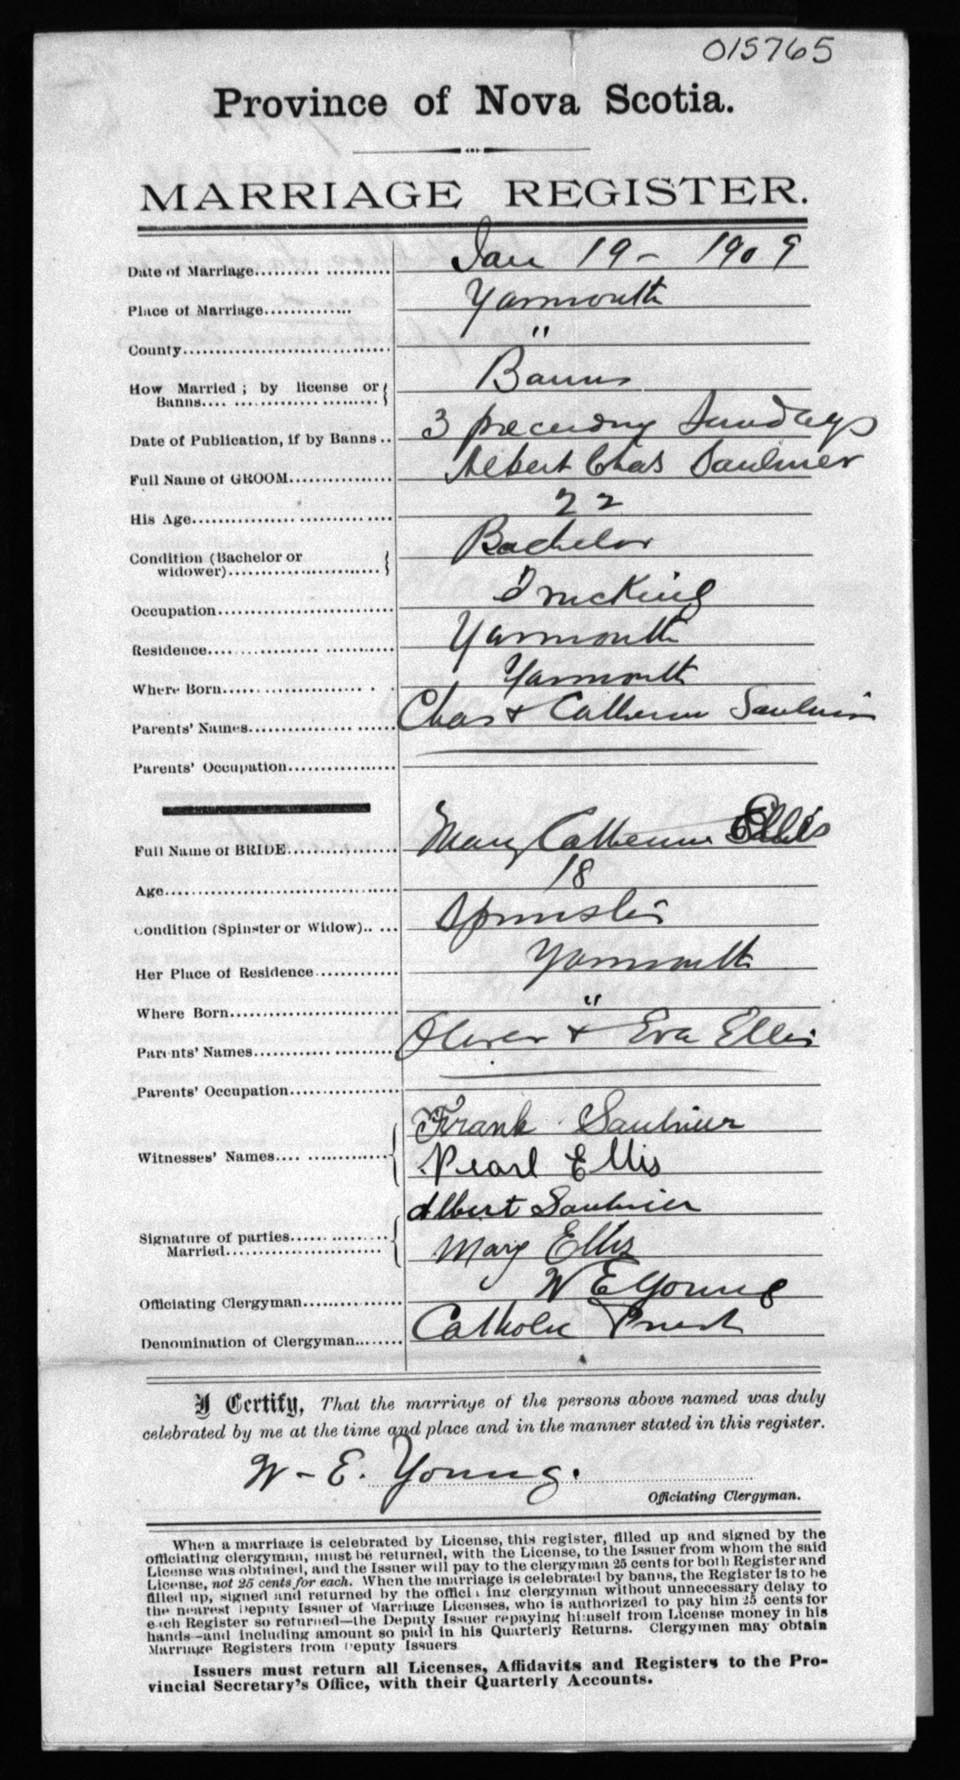 015765
Province of Nova Scotia.
MARRIAGE REGISTER.
Date of Marriage.......... .......... Jan 19 - 1909
Place of Marriage.............. Yarmouth
County................................ "
How Married ; by license or Banns
Banns.... .... ........................
Date of Publication, if by Banns .. 3 preceding Sundays
Full Name of GROOM................ Albert Chas Saulnier
His Age.................. ................ 22
Condition (Bachelor or Bachelor
widower)..........................
Occupation........................... Trucking
Residence.... ............ ............ Yarmouth
Where Born..................... . . Yarmouth
Parents' Names.................. ...... Chas & Catherine Saulnier
Parents' Occupation..................
Full Name of BRIDE................ Mary Catherine Ellis
Age.................................. 18
Condition (Spinster or Widow).. ... Spinster
Her Place of Residence ............ Yarmouth
Where Born......................... "
Parents' Names..................... Oliver & Eva Ellis
Parents' Occupation................
Frank Saulnier
Witnesses' Names.... ............... Pearl Ellis
Albert Saulnier
Signature of parties...... ............
Married....................... Mary Ellis
Officiating Clergyman............... W E Young
Denomination of Clergyman........ Catholic Priest
I Certify, That the marriage of the persons above named was duly
celebrated by me at the time and place and in the manner stated in this register.
W - E. Young.
Officiating Clergyman.
When a marriage is celebrated by License, this register, filled up and signed by the
officiating clergyman, must be returned, with the License, to the Issuer from whom the said
License was obtained, and the Issuer will pay to the clergyman 25 cents for both Register and
License, not 25 cents for each. When the marriage is celebrated by banns, the Register is to be
filled up, signed and returned by the officiating clergyman without unnecessary delay to
the nearest Deputy Issuer of Marriage Licenses, who is authorized to pay him 25 cents for
each Register so returned—the Deputy Issuer repaying himself from License money in his
hands—and including amount so paid in his Quarterly Returns. Clergymen may obtain
Marriage Registers from Deputy Issuers
Issuers must return all Licenses, Affidavits and Registers to the Pro-
vincial Secretary's Office, with their Quarterly Accounts.